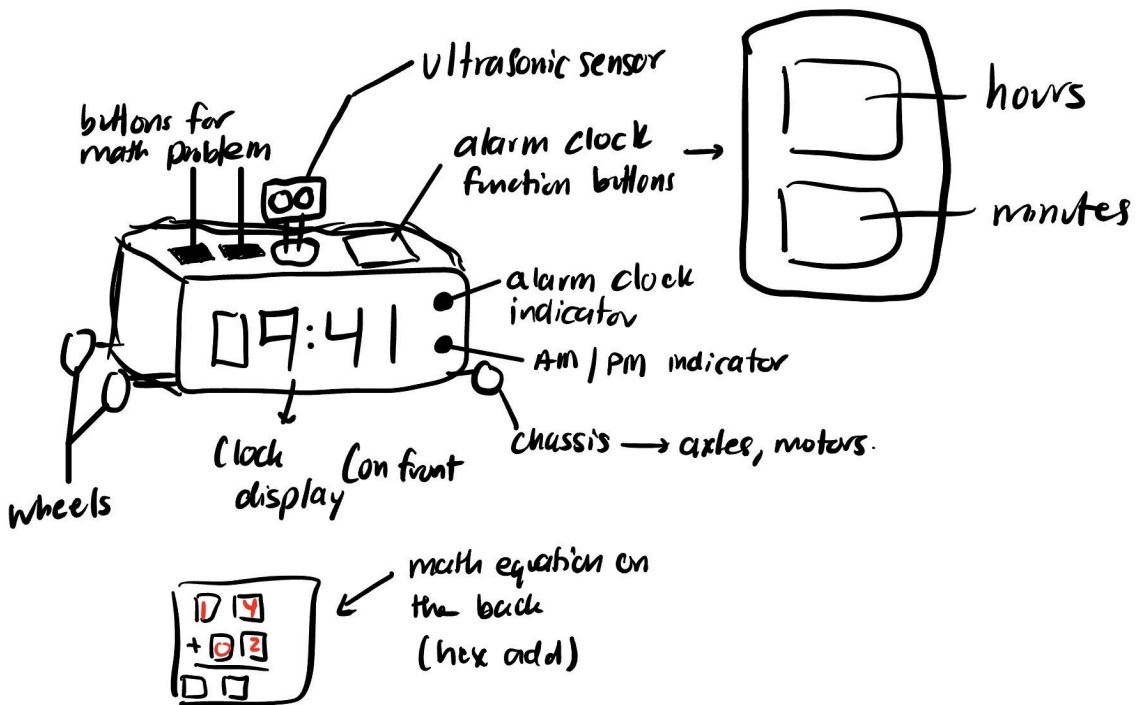 ultrasonic sensor
buttons for
math problem
alarm clock →
function buttons
hours
minutes
alarm clock
indicator
AM/PM indicator
09:41
chassis → axles, motors.
Clock
display
(on front
wheels
math equation on
the back
(hex add)
14
+ 02